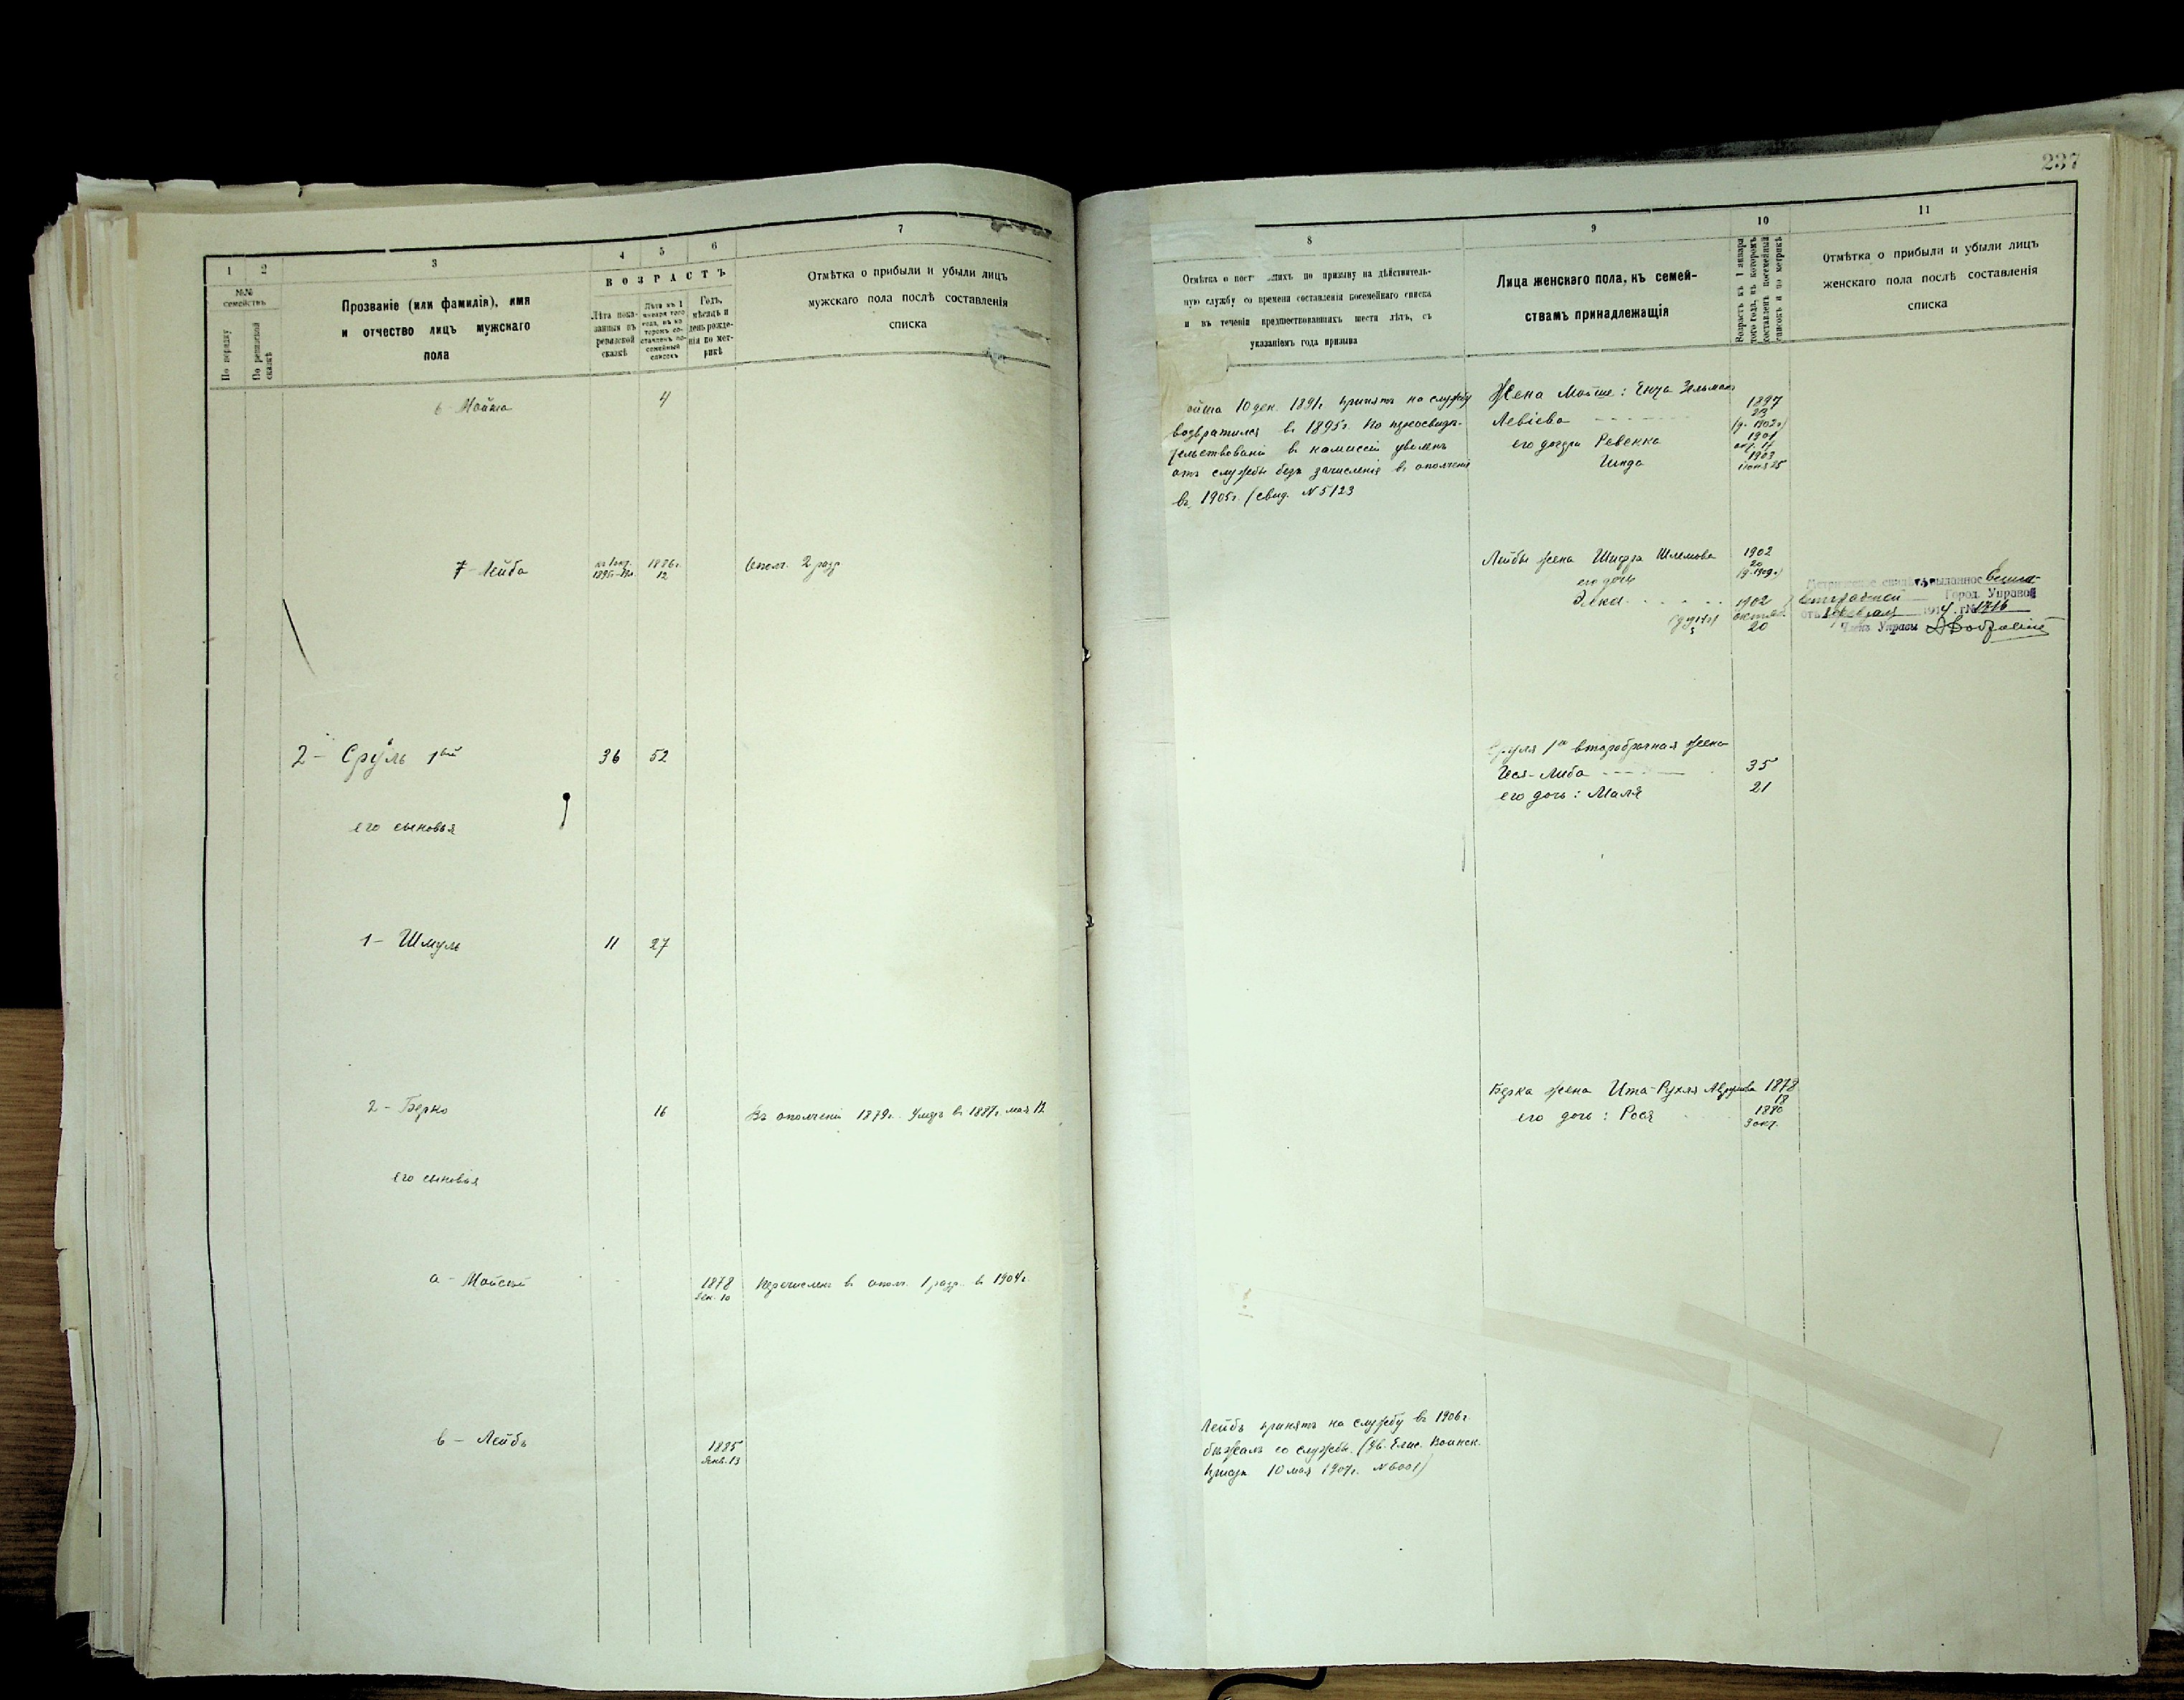 237
1 2 3 4 5 6 7
№№ семействъ
По порядку
По ревизской сказкѣ
Прозваніе (или фамилія), имя
и отчество лицъ мужскаго
пола
ВОЗРАСТЪ
Лѣта пока-
занныя въ
ревизской
сказкѣ
Лѣта къ 1
января того
года, въ ко-
торомъ со-
ставленъ по-
семейный
списокъ
Годъ,
мѣсяцъ и
день рожде-
нія по мет-
рикѣ
Отмѣтка о прибыли и убыли лицъ
мужскаго пола послѣ составленія
списка
4
7 - Лейба
1886 г.
12
Ополч. 2 разр
2 - Сруль 1ый
36 52
его сыновья
1 - Шмуль 11 27
2 - Берко 16
Въ ополченіи 1879 г. Умеръ въ 1887 г. мая 12
его сыновья
а - Мойсей
1878
дек. 10
Перечисленъ въ ополч. 1 разр. въ 1904 г.
в - Лейбъ
1885
янв. 13
8 9 10 11
ную службу со времени составленія посемейнаго списка
и въ теченіи предшествовавшихъ шести лѣтъ, съ
указаніемъ года призыва
Лица женскаго пола, къ семей-
ствамъ принадлежащія
Возрастъ къ 1 января
того года, въ которомъ
составленъ посемейный
списокъ и по метрикѣ
Отмѣтка о прибыли и убыли лицъ
женскаго пола послѣ составленія
списка
ойша 10 дек. 1891 г. принятъ на службу
возвратился въ 1895 г. По переосвидѣ-
тельствованіи въ комиссіи уволенъ
отъ службы безъ зачисленія въ ополченіе
въ 1905 г. (свид. № 5123
Жена Мойше: Зельман
Левіева
его дочери Ревекка
Гинда
1897
23
(д. 1902 г)
1901
1903
іюня 25
Лейбы жена Шифра Шлемова
его дочь
Элка
1902
20
1902
октяб.
20
выданное
Город. Управой
отъ февраля 1914 г. № 1716
Членъ Управы
Сруля 1го второбрачная жена
Либа 35
его дочь: Маля 21
Берка жена Ита-Рухля 1878
18
его дочь: Рося
1880
9 окт.
Лейбъ принятъ на службу въ 1906 г.
бѣжалъ со службы. (Ув. Елис. Воинск.
присут. 10 мая 1907 г. № 6001)